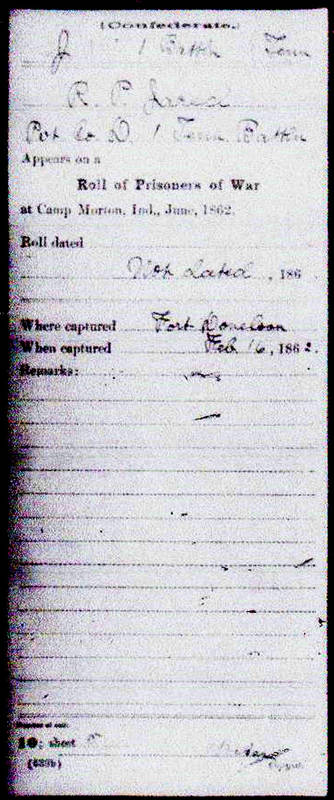 (Confederate.)
J 1 Battn Tenn
R. P. Jared
Pvt Co D. 1 Tenn. Battn
Appears on a
Roll of Prisoners of War
at Camp Morton, Ind., June, 1862.
Roll dated
Not dated, 186
Where captured Fort Donelson
When captured Feb 16, 1862.
Remarks:
Number of roll:
10; sheet
(639b)